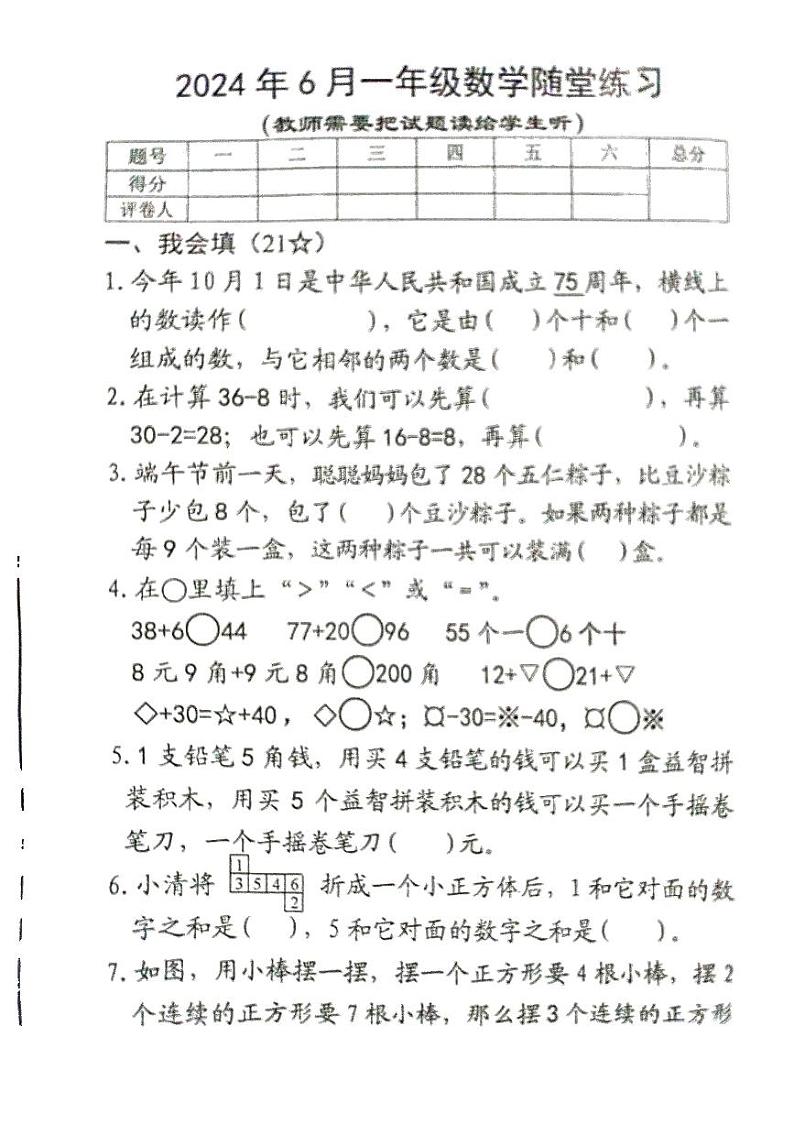 2024年6月一年级数学随堂练习
(教师需要把试题读给学生听)
题号 一 二 三 四 五 六 总分
得分
评卷人
一、我会填（21☆）
1.今年10月1日是中华人民共和国成立75周年，横线上
的数读作(          )，它是由(   )个十和(   )个一
组成的数，与它相邻的两个数是(    )和(    )。
2.在计算36-8时，我们可以先算(          )，再算
30-2=28；也可以先算16-8=8，再算(          )。
3.端午节前一天，聪聪妈妈包了28个五仁粽子，比豆沙粽
子少包8个，包了(   )个豆沙粽子。如果两种粽子都是
每9个装一盒，这两种粽子一共可以装满(   )盒。
4.在○里填上“>”“<”或“=”。
38+6○44  77+20○96  55个一○6个十
8元9角+9元8角○200角  12+▽○21+▽
◇+30=☆+40，◇○☆；¤-30=※-40，¤○※
5.1支铅笔5角钱，用买4支铅笔的钱可以买1盒益智拼
装积木，用买5个益智拼装积木的钱可以买一个手摇卷
笔刀，一个手摇卷笔刀(    )元。
1
6.小清将 3 5 4 6 折成一个小正方体后，1和它对面的数
2
字之和是(    )，5和它对面的数字之和是(    )。
7.如图，用小棒摆一摆，摆一个正方形要4根小棒，摆2
个连续的正方形要7根小棒，那么摆3个连续的正方形